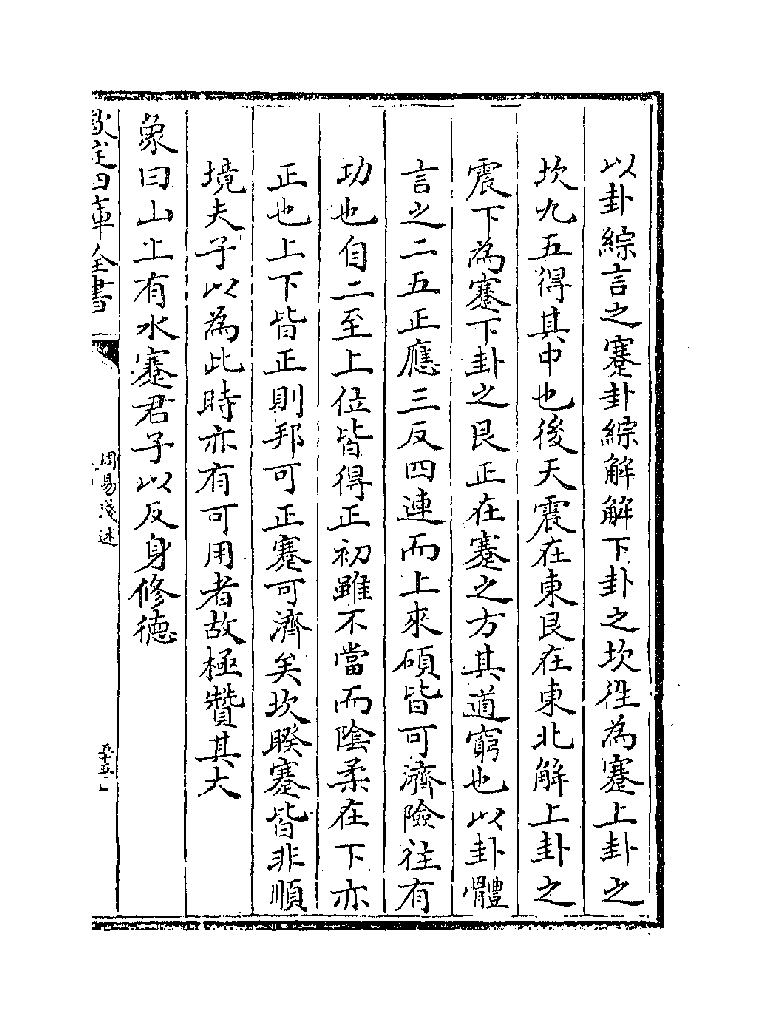 以卦綜言之蹇卦綜解解下卦之坎徃為蹇上卦之
坎九五得其中也後天震在東艮在東北解上卦之
震下為蹇下卦之艮正在蹇之方其道窮也以卦體
言之二五正應三反四連而上來碩皆可濟險往有
功也自二至上位皆得正初雖不當而陰柔在下亦
正也上下皆正則邦可正蹇可濟矣坎睽蹇皆非順
境夫子以為此時亦有可用者故極贊其大
象曰山上有水蹇君子以反身修德
欽定四庫全書
周易淺述